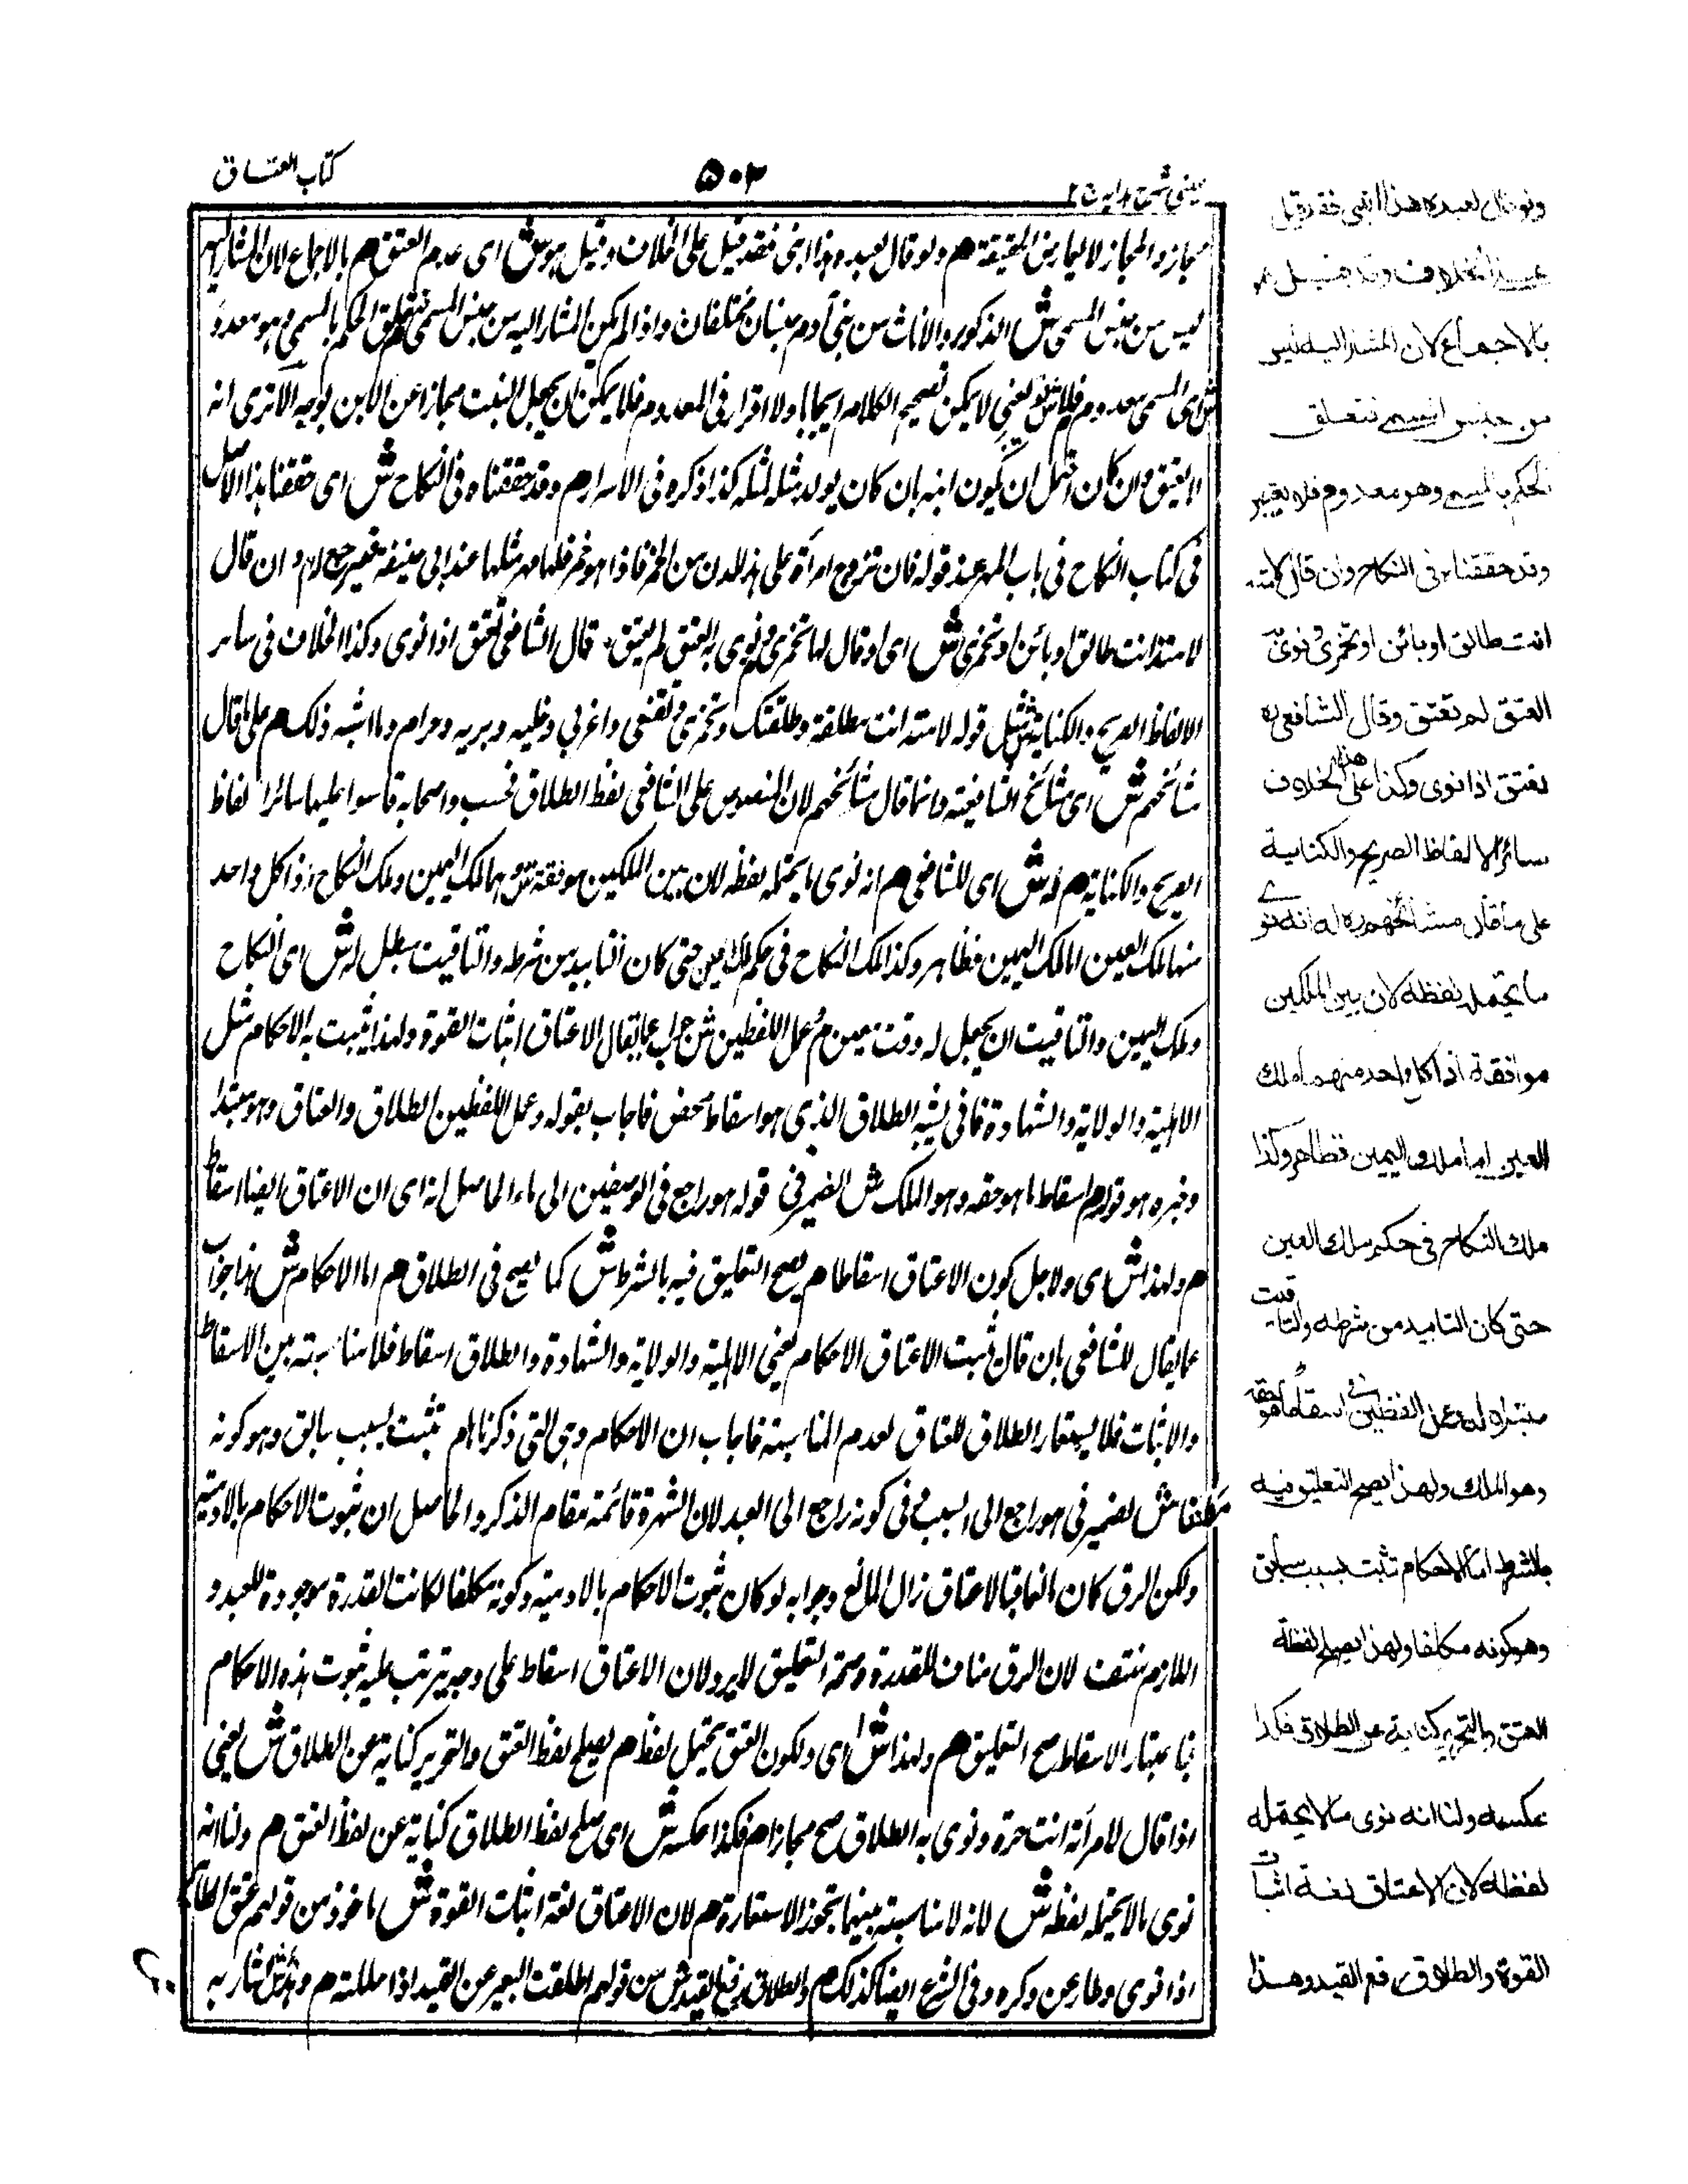 كتاب العتاق
٥٠٢
عينى شرح هدايه ج ٢
مجاز والمجاز لا يعارض الحقيقة هم ولو قال لعبده هذا ابنتى فقد قيل على الخلاف وقيل هو ش اى عدم العتق هم بالاجماع لان المشار اليه
ليس من جنس المسمى ش الذكور والاناث من بنى آدم جنسان مختلفان واذا لم يكن المشار اليه من جنس المسمى فتعلق الحكم بالمسمى وهو معدوم
ش اى المسمى معدوم هم فلا ش يعنى لا يمكن تصحيح الكلام ايجابا ولا اقرار فى المعدوم فلا يمكن ان يجعل البنت مجازا عن الابن بوجه الا ترى انه
لا يعتق وان كان يحتمل ان يكون ابنه بان كان يولد مثله لمثله كذا ذكره فى الاسرار هم وقد حققناه فى النكاح ش اى حققنا هذا الاصل
فى كتاب النكاح فى باب المهر عند قوله فان تزوج امرأة على هذا الدن من الخل فاذا هو خمر فلها مهر مثلها عند ابى حنيفة هم وان قال
لامته انت طالق او بائن او تخمرى ش اى او قال لها تخمرى هم ونوى به العتق لم يعتق قال الشافعى تعتق اذا نوى وكذا الخلاف فى سائر
الالفاظ الصريح والكناية ش مثل قوله لامته انت مطلقة وطلقتك وتخمرى وتقنعى واغربى وخلية وبرية وحرام وما اشبه ذلك هم على ما قال
مشائخهم ش اى مشائخ الشافعية وانما قال مشائخهم لان المنصوص على الشافعى لفظ الطلاق فحسب واصحابه قاسوا عليها سائر الفاظ
الصريح والكناية هم له ش اى للشافعى هم انه نوى ما يحتمله لفظه لان بين الملكين موافقة ش وهما ملك اليمين وملك النكاح اذ كل واحد
منهما ملك العين اما ملك اليمين فظاهر وكذا ملك النكاح فى حكم ملك العين حتى كان التابيد من شرطه والتاقيت مبطل له ش اى النكاح
وملك اليمين والتاقيت ان يجعل له وقت معين هم وعمل اللفظين ش جواب عما يقال الاعتاق اثبات القوة ولهذا يثبت به الاحكام مثل
الاهلية والولاية والشهادة فانى يشبه الطلاق الذى هو اسقاط محض فاجاب بقوله وعمل اللفظين الطلاق والعتاق وهو مبتدا
وخبره هو قوله هم اسقاط ما هو حقه وهو الملك ش الضمير فى قوله هو راجع فى الوصفين الى ما الحاصل انه اى ان الاعتاق ايضا اسقاط
هم ولهذا ش اى ولاجل كون الاعتاق اسقاطا هم يصح التعليق فيه بالشرط ش كما يصح فى الطلاق هم اما الاحكام ش هذا جواب
عما يقال للشافعى بان قال يثبت الاعتاق الاحكام يعنى الاهلية والولاية والشهادة والطلاق اسقاط فلا مناسبة بين الاسقاط
والاثبات فلا يستعار الطلاق للعتاق لعدم المناسبة فاجاب ان الاحكام وهى التى ذكرناها هم تثبت بسبب سابق وهو كونه
مكلفا ش الضمير فى هو راجع الى السبب وفى كونه راجع الى العبد لان الشهرة قائمة مقام الذكر والحاصل ان ثبوت الاحكام بالادمية
ولكن الرق كان مانعا فبالاعتاق زال المانع وجوابه لو كان ثبوت الاحكام بالادمية وكونه مكلفا لكانت القدرة موجودة للعبد و
اللازم منتف لان الرق مناف للقدرة وصحة التعليق لا يرد لان الاعتاق اسقاط على وجه يترتب عليه ثبوت هذه الاحكام
فباعتبار الاسقاط صح التعليق هم ولهذا ش اى ولكون العتق يحتمل لفظ هم يصلح لفظ العتق والتحرير كناية عن الطلاق ش يعنى
اذا قال لامرأته انت حرة ونوى به الطلاق صح مجازا هم فكذا عكسه ش اى صلح لفظ الطلاق كناية عن لفظ العتق هم ولنا انه
نوى ما لا يحتمله لفظه ش لانه لا مناسبة بينهما تجوز الاستعارة هم لان الاعتاق لغة اثبات القوة ش ماخوذ من قولهم عتق الطائر
اذا قوى وطار عن وكره وفى الشرع ايضا كذلك هم والطلاق رفع القيد ش من قولهم اطلقت البعير عن القيد اذا حللته هم وهذا ش اشار به
ولو قال لعبده هذا ابنتى فقد قيل
على الخلاف وقد قيل هو
بالاجماع لان المشار اليه ليس
من جنس المسمى فتعلق
الحكم بالمسمى وهو معدوم فلا يعتبر
وقد حققناه فى النكاح وان قال لامته
انت طالق او بائن او تخمرى ونوى به
العتق لم تعتق وقال الشافعى ره
تعتق اذا نوى وكذا على هذا الخلاف
سائر الالفاظ الصريح والكناية
على ما قال مشائخهم ره له انه نوى
ما يحتمله لفظه لان بين الملكين
موافقة اذ كل واحد منهما ملك
العين اما ملك اليمين فظاهر وكذا
ملك النكاح فى حكم ملك العين
حتى كان التابيد من شرطه والتاقيت
مبطلا له وعمل اللفظين فى اسقاط ما هو حقه
وهو الملك ولهذا يصح التعليق فيه
بالشرط اما الاحكام تثبت بسبب سابق
وهو كونه مكلفا ولهذا يصلح لفظة
العتق والتحرير كناية عن الطلاق فكذا
عكسه ولنا انه نوى ما لا يحتمله
لفظه لان الاعتاق لغة اثبات
القوة والطلاق رفع القيد وهذا